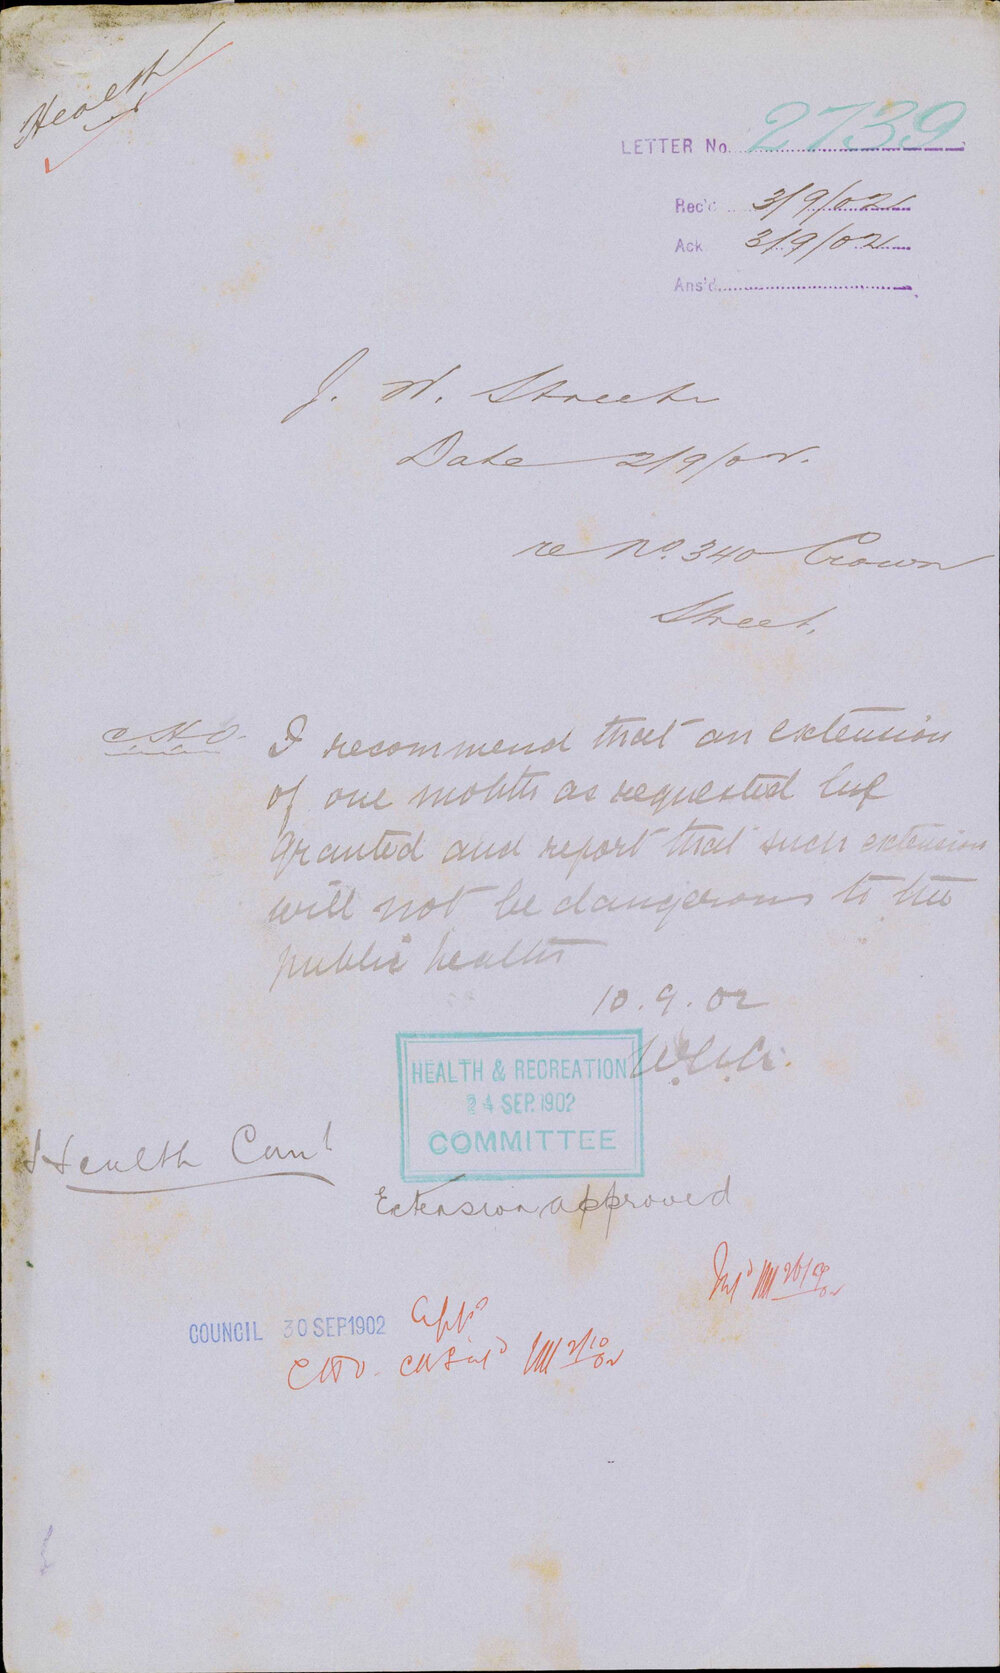 Health
LETTER No. 2739
Rec'd 3/9/02
Ack 3/9/02
Ans'd
J. W. Streeter
Date 2/9/02.
re No. 340 Crown
Street.
C.H.O. I recommend that an extension
of one month as requested be
granted and report that such extension
will not be dangerous to the
public health
10.9.02
HEALTH & RECREATION
24 SEP. 1902
COMMITTEE
Health Com'
Extension approved
26/9/02
COUNCIL 30 SEP 1902 App'd
CHO. 2/10/02